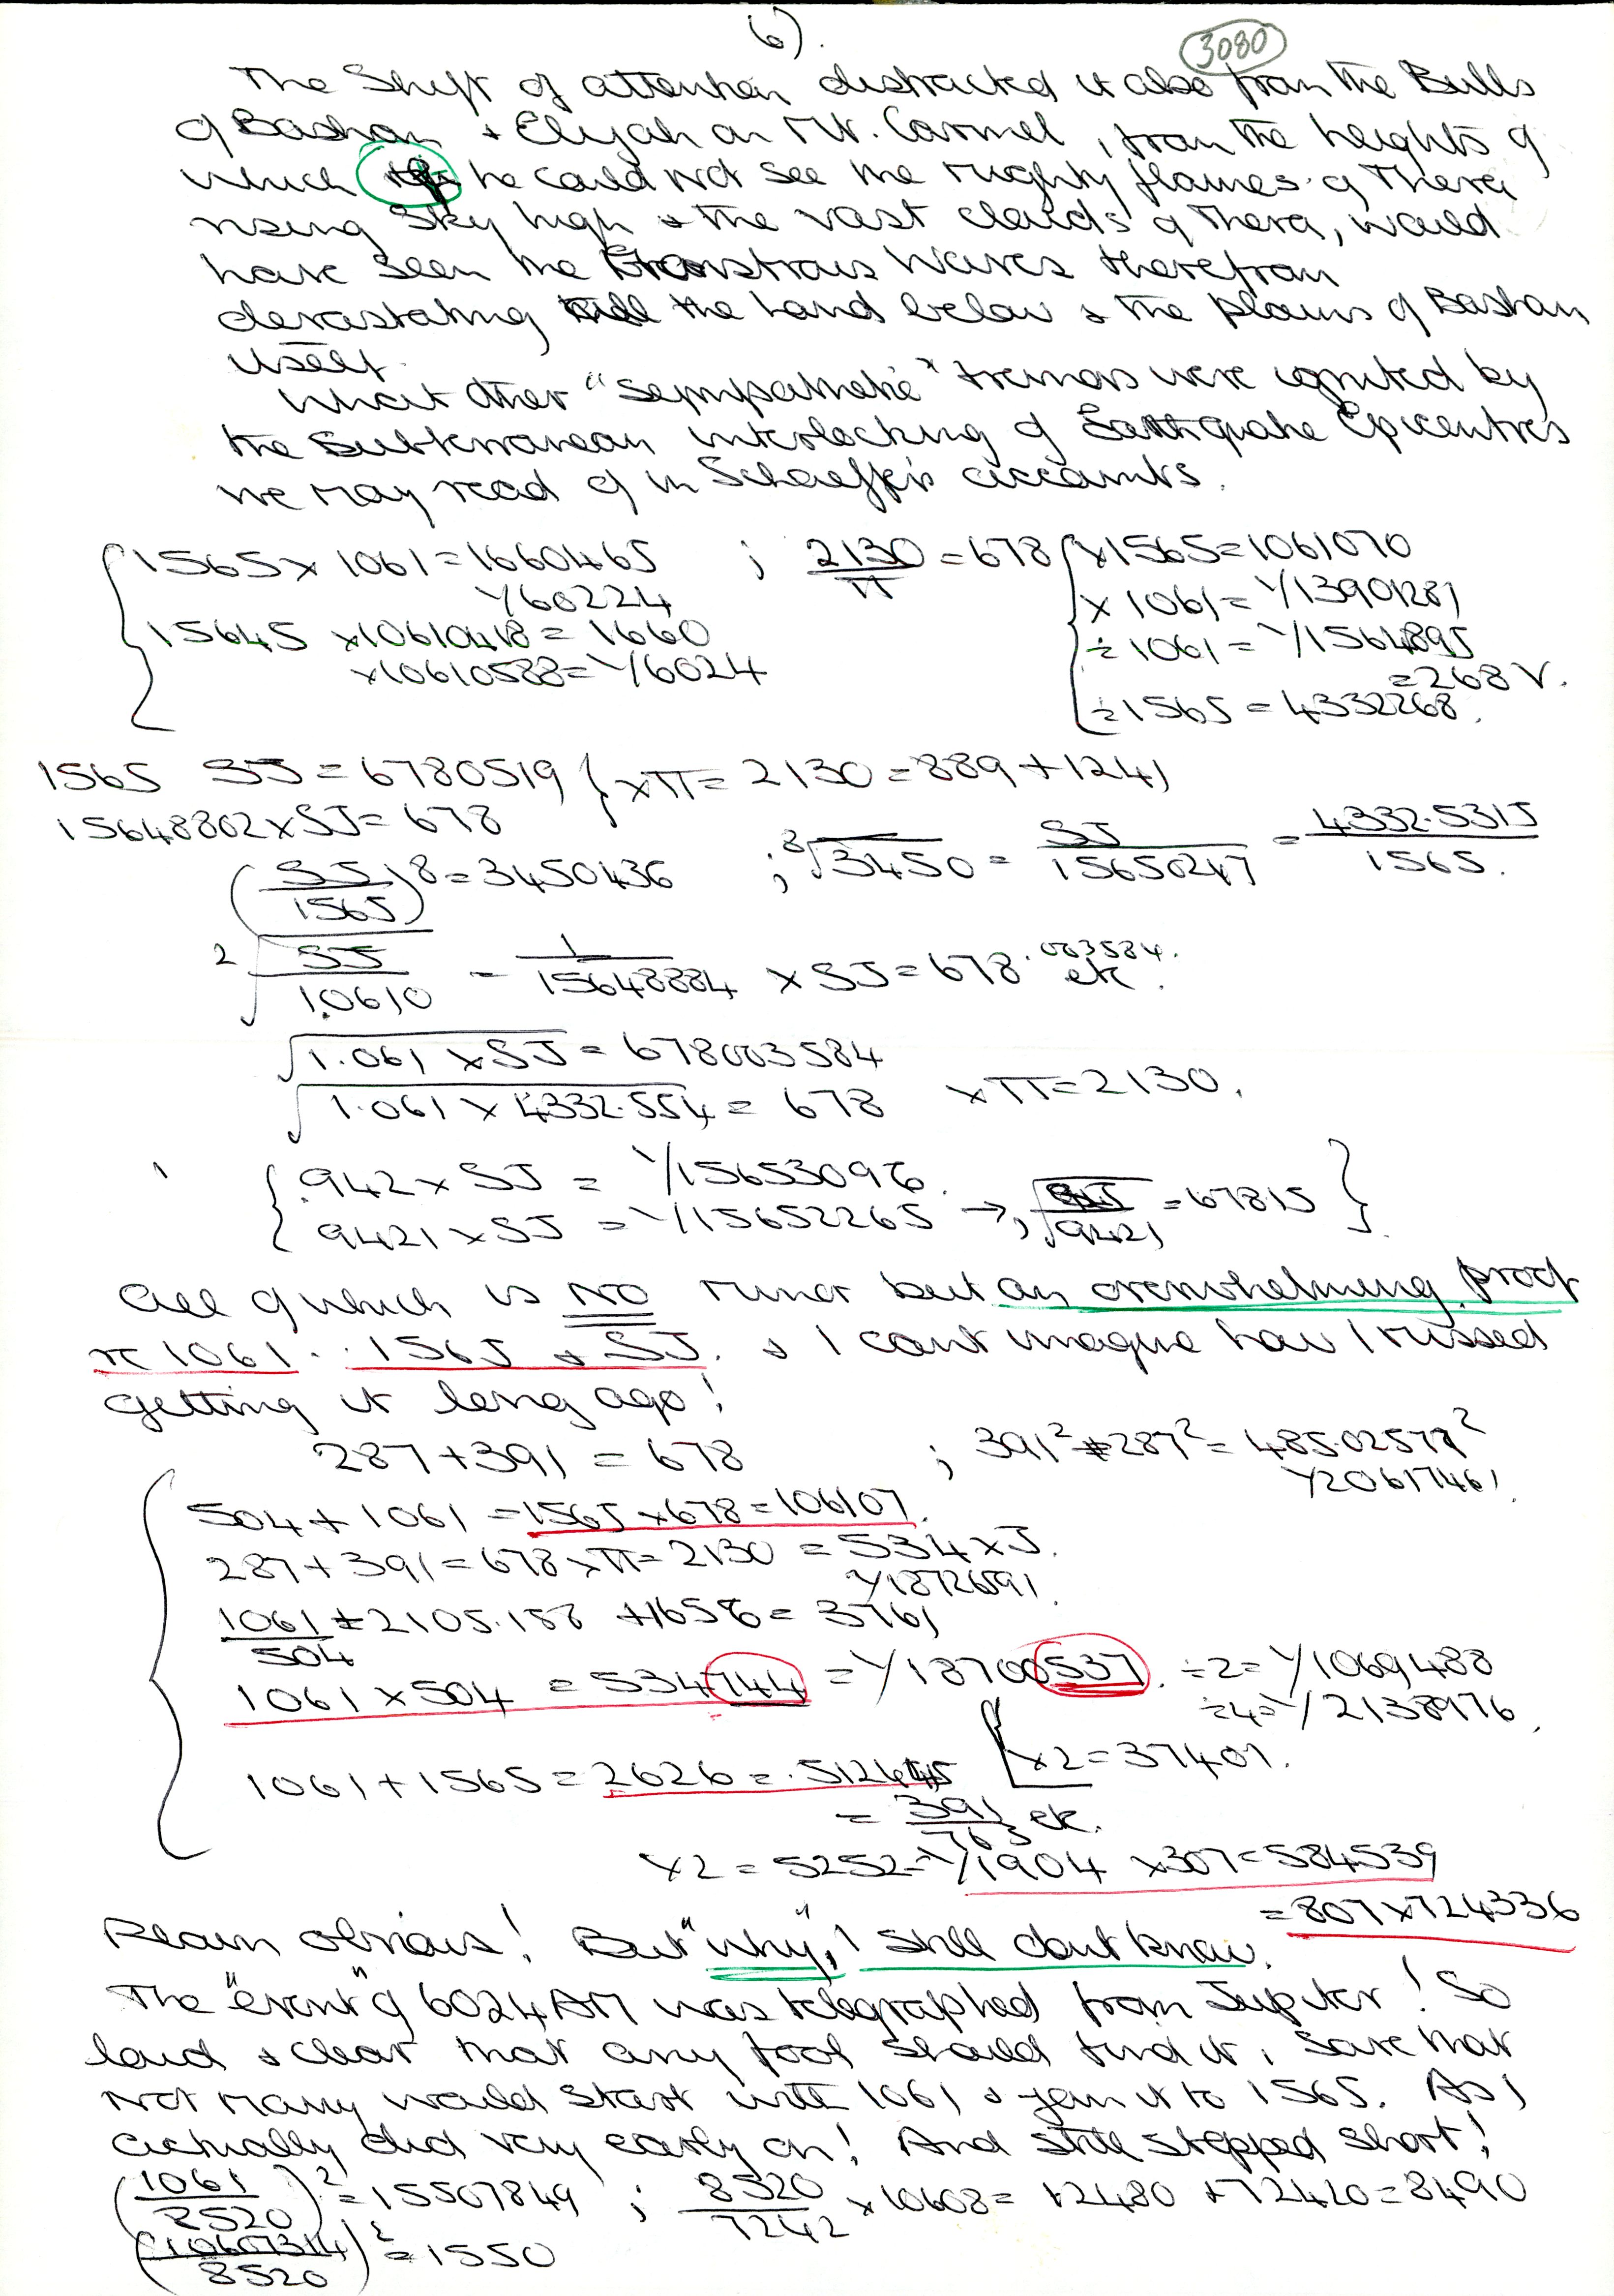 6).
3080
The Shift of attention distracted it also from the Bulls
of Bashan & Elijah on Mt. Carmel, from the heights of
which he could not see the mighty flames of Thera
rising sky high & the vast clouds of Thera, would
have seen the monstrous waves therefrom
devastating the land below & the plains of Bashan
itself.
What other "sempathetic" tremors were ignited by
the subterranean interlocking of Earthquake Epicentres
we may read of in Schaeffer's accounts.
1565 x 1061 = 1660465 ; 2130/π = 678 { x 1565 = 1061070
1/60224 x 1061 = 1/13901281
15645 x 10610418 = 1660 ÷ 1061 = 1/1564895
x 10610588 = 1/6024 = 268 V.
÷ 1565 = 4332268.
1565 SJ = 6780519 { x π = 2130 = 889 + 1241
15648802 x SJ = 678
(SJ/1565) 8 = 3450436 ; 8√3450 = SJ/15650247 = 4332.5315/1565.
2√SJ/1.0610 = 1/15648884 x SJ = 678.003584. etc.
√1.061 x SJ = 678003584
√1.061 x 4332.554 = 678 x π = 2130.
{ .942 x SJ = 1/15653096.
9421 x SJ = 1/15652265 →, √SJ/9421 = 67815 }
All of which is NO minor but an overwhelming proof
re 1061 . . 1565 & SJ. & I cant imagine how I missed
getting it long ago!
287 + 391 = 678 ; 391² + 287² = 485.02577²
1/20617461.
504 + 1061 = 1565 x 678 = 106107.
287 + 391 = 678 x π = 2130 = 534 x J.
1/18726591.
1061/504 = 2105.158 + 1656 = 3761
1061 x 504 = 534744 = 1/18700537. ÷2 = 1/1069488
÷4 = 1/2138976.
[x 2 = 37401.
1061 + 1565 = 2626 = .512645
= 391/763 etc.
x 2 = 5252 = 1/1904 x 307 = 584539
= 807 x 724336
Plain obvious! But "why", I still dont know.
The "event" of 6024 AM was telegraphed from Jupiter! So
loud & clear that any fool should find it, save that
not many would start with 1061 & join it to 1565. As I
actually did very early on! And still stepped short!
(1061/8520)² = 15507849 ; 8520/7242 x 10608 = 12480 + 72420 = 8490
(10607314/8520)² = 1550